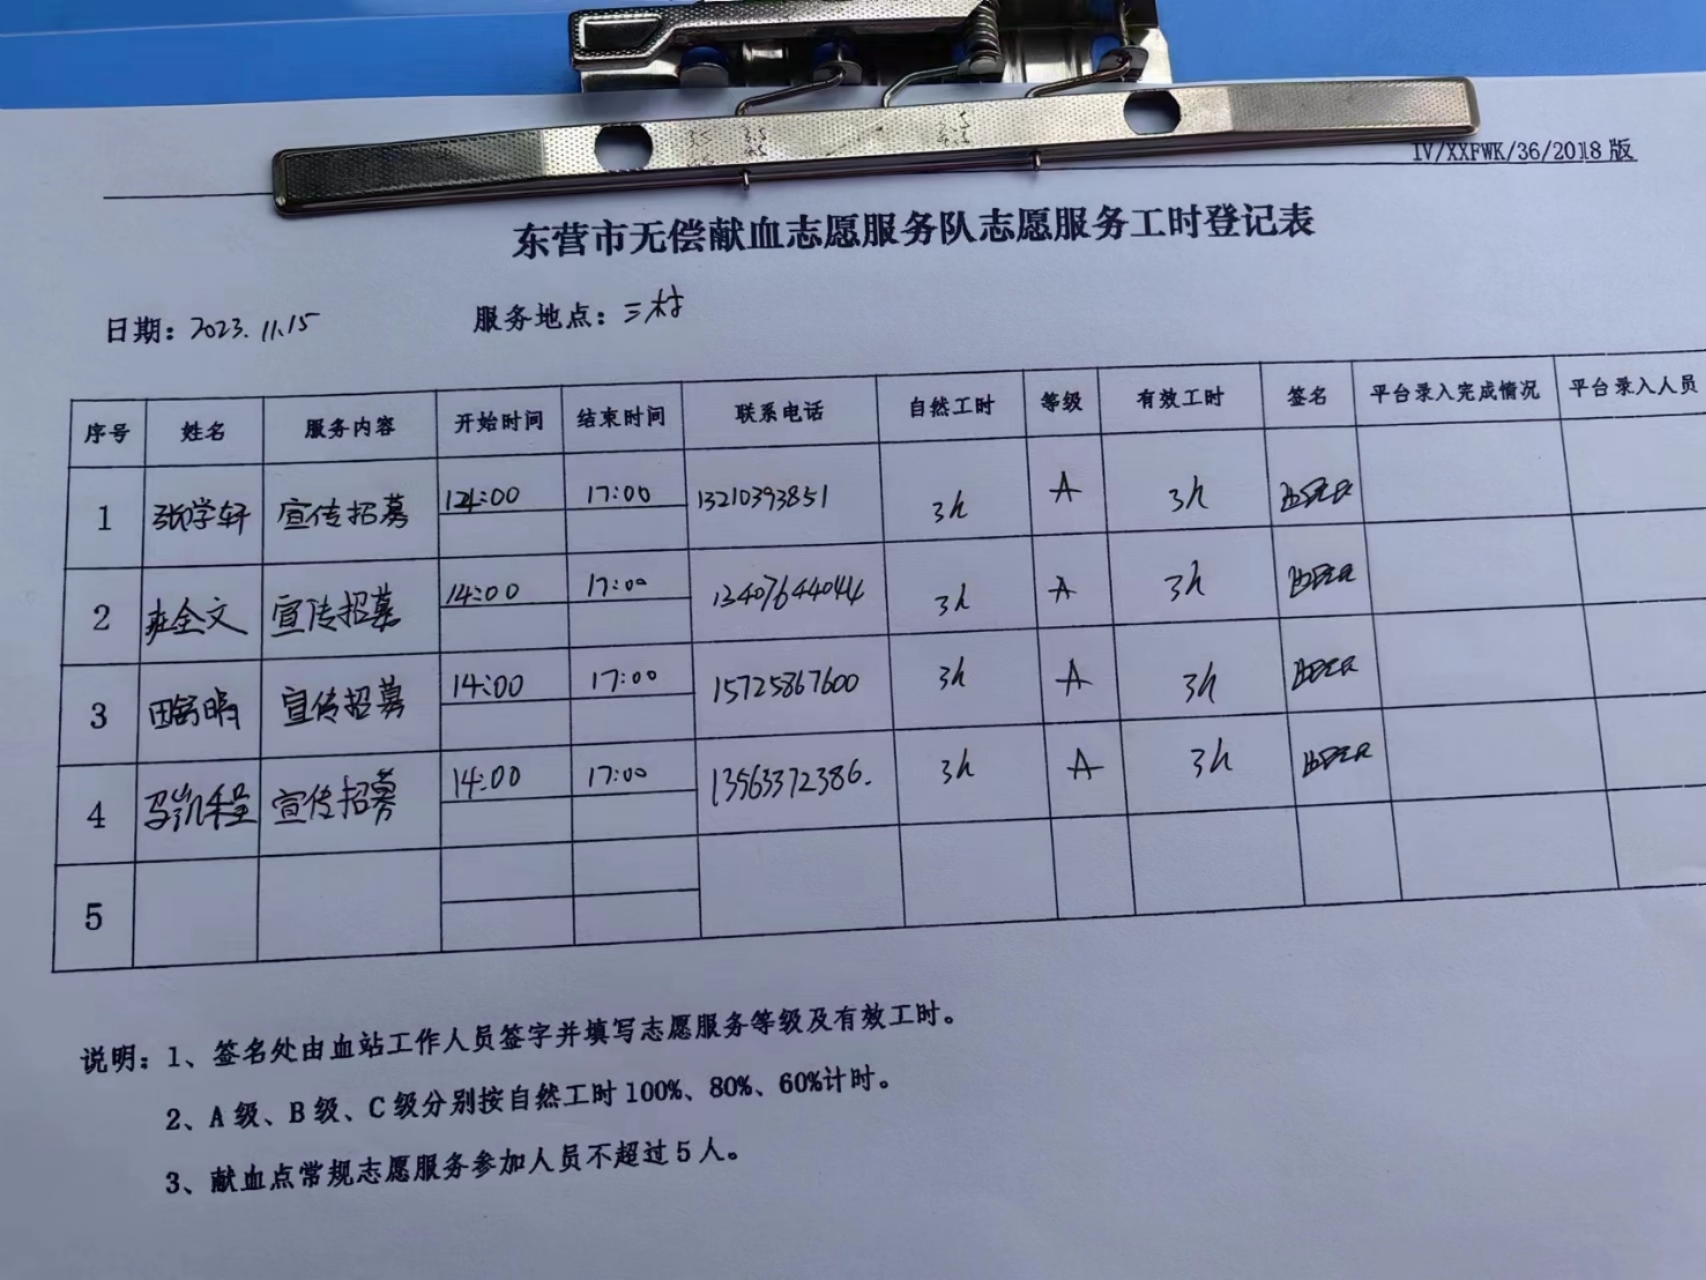 IV/XXFWK/36/2018版
东营市无偿献血志愿服务队志愿服务工时登记表
日期：2023.11.15 服务地点：三村
序号 姓名 服务内容 开始时间 结束时间 联系电话 自然工时 等级 有效工时 签名 平台录入完成情况 平台录入人员
1 张学轩 宣传招募 14:00 17:00 13210393851 3h A 3h
2 全文 宣传招募 14:00 17:00 13407644044 3h A 3h
3 田舒晴 宣传招募 14:00 17:00 15725867600 3h A 3h
4 马凯程 宣传招募 14:00 17:00 13563372386. 3h A 3h
5
说明：1、签名处由血站工作人员签字并填写志愿服务等级及有效工时。
2、A级、B级、C级分别按自然工时100%、80%、60%计时。
3、献血点常规志愿服务参加人员不超过5人。